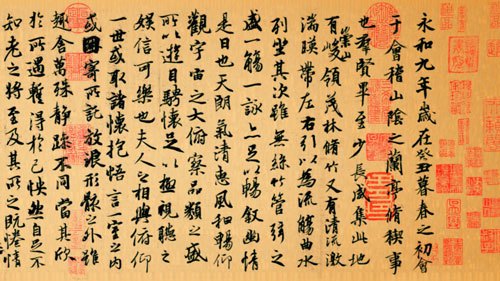 永和九年歲在癸丑暮春之初會
于會稽山陰之蘭亭脩禊事
也羣賢畢至少長咸集此地
有崇山峻領茂林脩竹又有清流激
湍暎帶左右引以為流觴曲水
列坐其次雖無絲竹管弦之
盛一觴一詠亦足以暢叙幽情
是日也天朗氣清惠風和暢仰
觀宇宙之大俯察品類之盛
所以遊目騁懷足以極視聽之
娛信可樂也夫人之相與俯仰
一世或取諸懷抱悟言一室之內
或因寄所託放浪形骸之外雖
趣舍萬殊靜躁不同當其欣
於所遇暫得於己怏然自足不
知老之將至及其所之既惓情